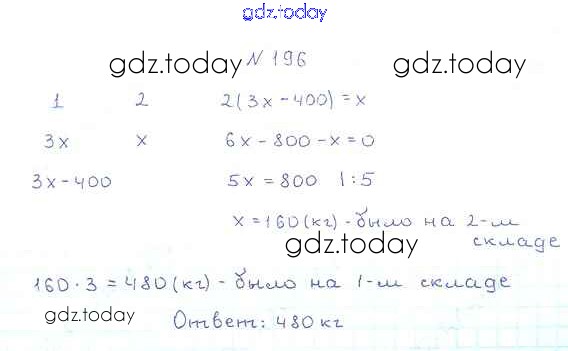 gdz.today
№196
gdz.today gdz.today
1 2 2(3x-400)=x
3x x 6x-800-x=0
3x-400 5x=800 |:5
x=160(кг)-было на 2-м
складе
gdz.today
160·3=480(кг)-было на 1-м складе
gdz.today Ответ: 480 кг